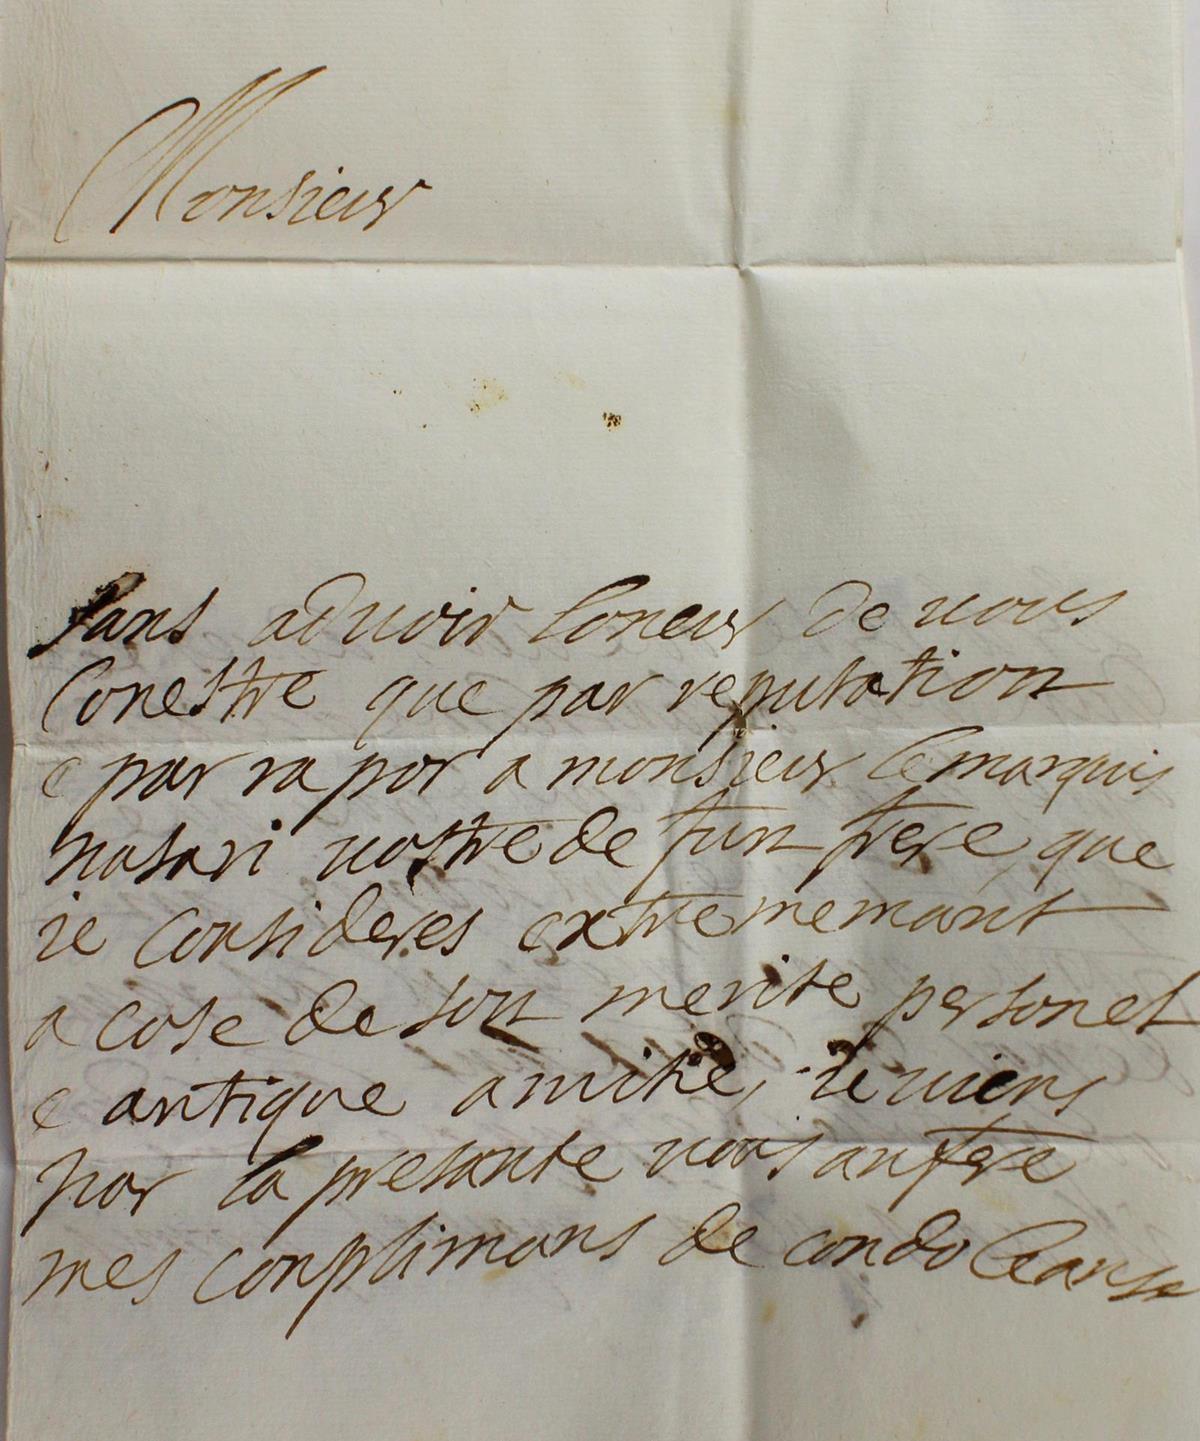 Monsieur
sans advoir loneur de vous
conestre que par reputation
e par rapor a monsieur le marquis
natari vostre defun frere, que
ie consideres extrememant
a cose de son merite personel
e antique amitie, ie viens
par la presante vous an fere
mes conplimans de condoleanse